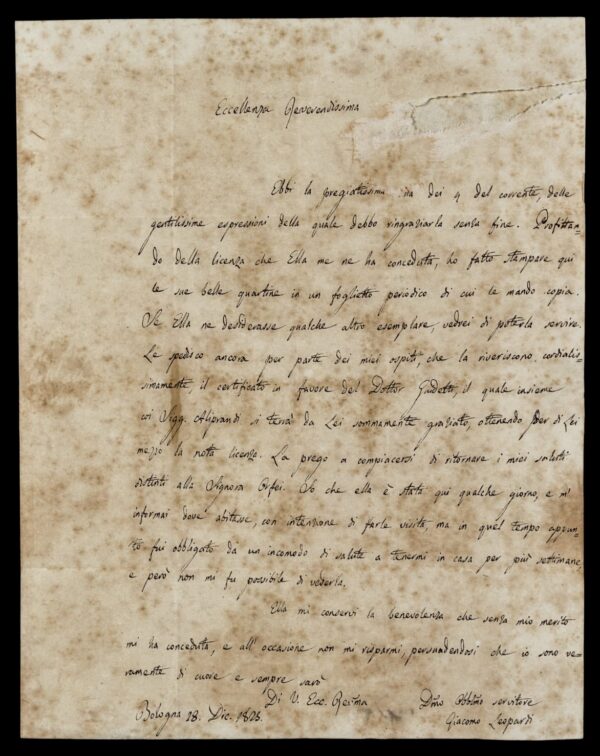 Eccellenza Reverendissima
Ebbi la pregiatissima sua dei 4 del corrente, delle
gentilissime espressioni della quale debbo ringraziarla senza fine. Profittan-
do della licenza che Ella me ne ha conceduta, ho fatto stampare qui
le sue belle quartine in un foglietto periodico di cui le mando copia.
Se Ella ne desiderasse qualche altro esemplare, vedrei di poterla servire.
Le spedisco ancora per parte dei miei ospiti, che la riveriscono cordialis-
simamente, il certificato in favore del Dottor il quale insieme
coi Sigg. Aliprandi si terrà da Lei sommamente graziato, ottenendo per di Lei
mezzo la nota licenza. La prego a compiacersi di ritornare i miei saluti
distinti alla Signora Orfei. So che ella è stata qui qualche giorno, e m'
informai dove abitasse, con intenzione di farle visita, ma in quel tempo appun-
to fui obbligato da un incomodo di salute a tenermi in casa per più settimane,
e però non mi fu possibile di vederla.
Ella mi conservi la benevolenza che senza mio merito
mi ha conceduta, e all' occasione non mi risparmi, persuadendosi che io sono ve-
ramente di cuore e sempre sarò
Di V. Ecc. Revma
Bologna 28. Dic. 1825.
Dmo Obbmo servitore
Giacomo Leopardi